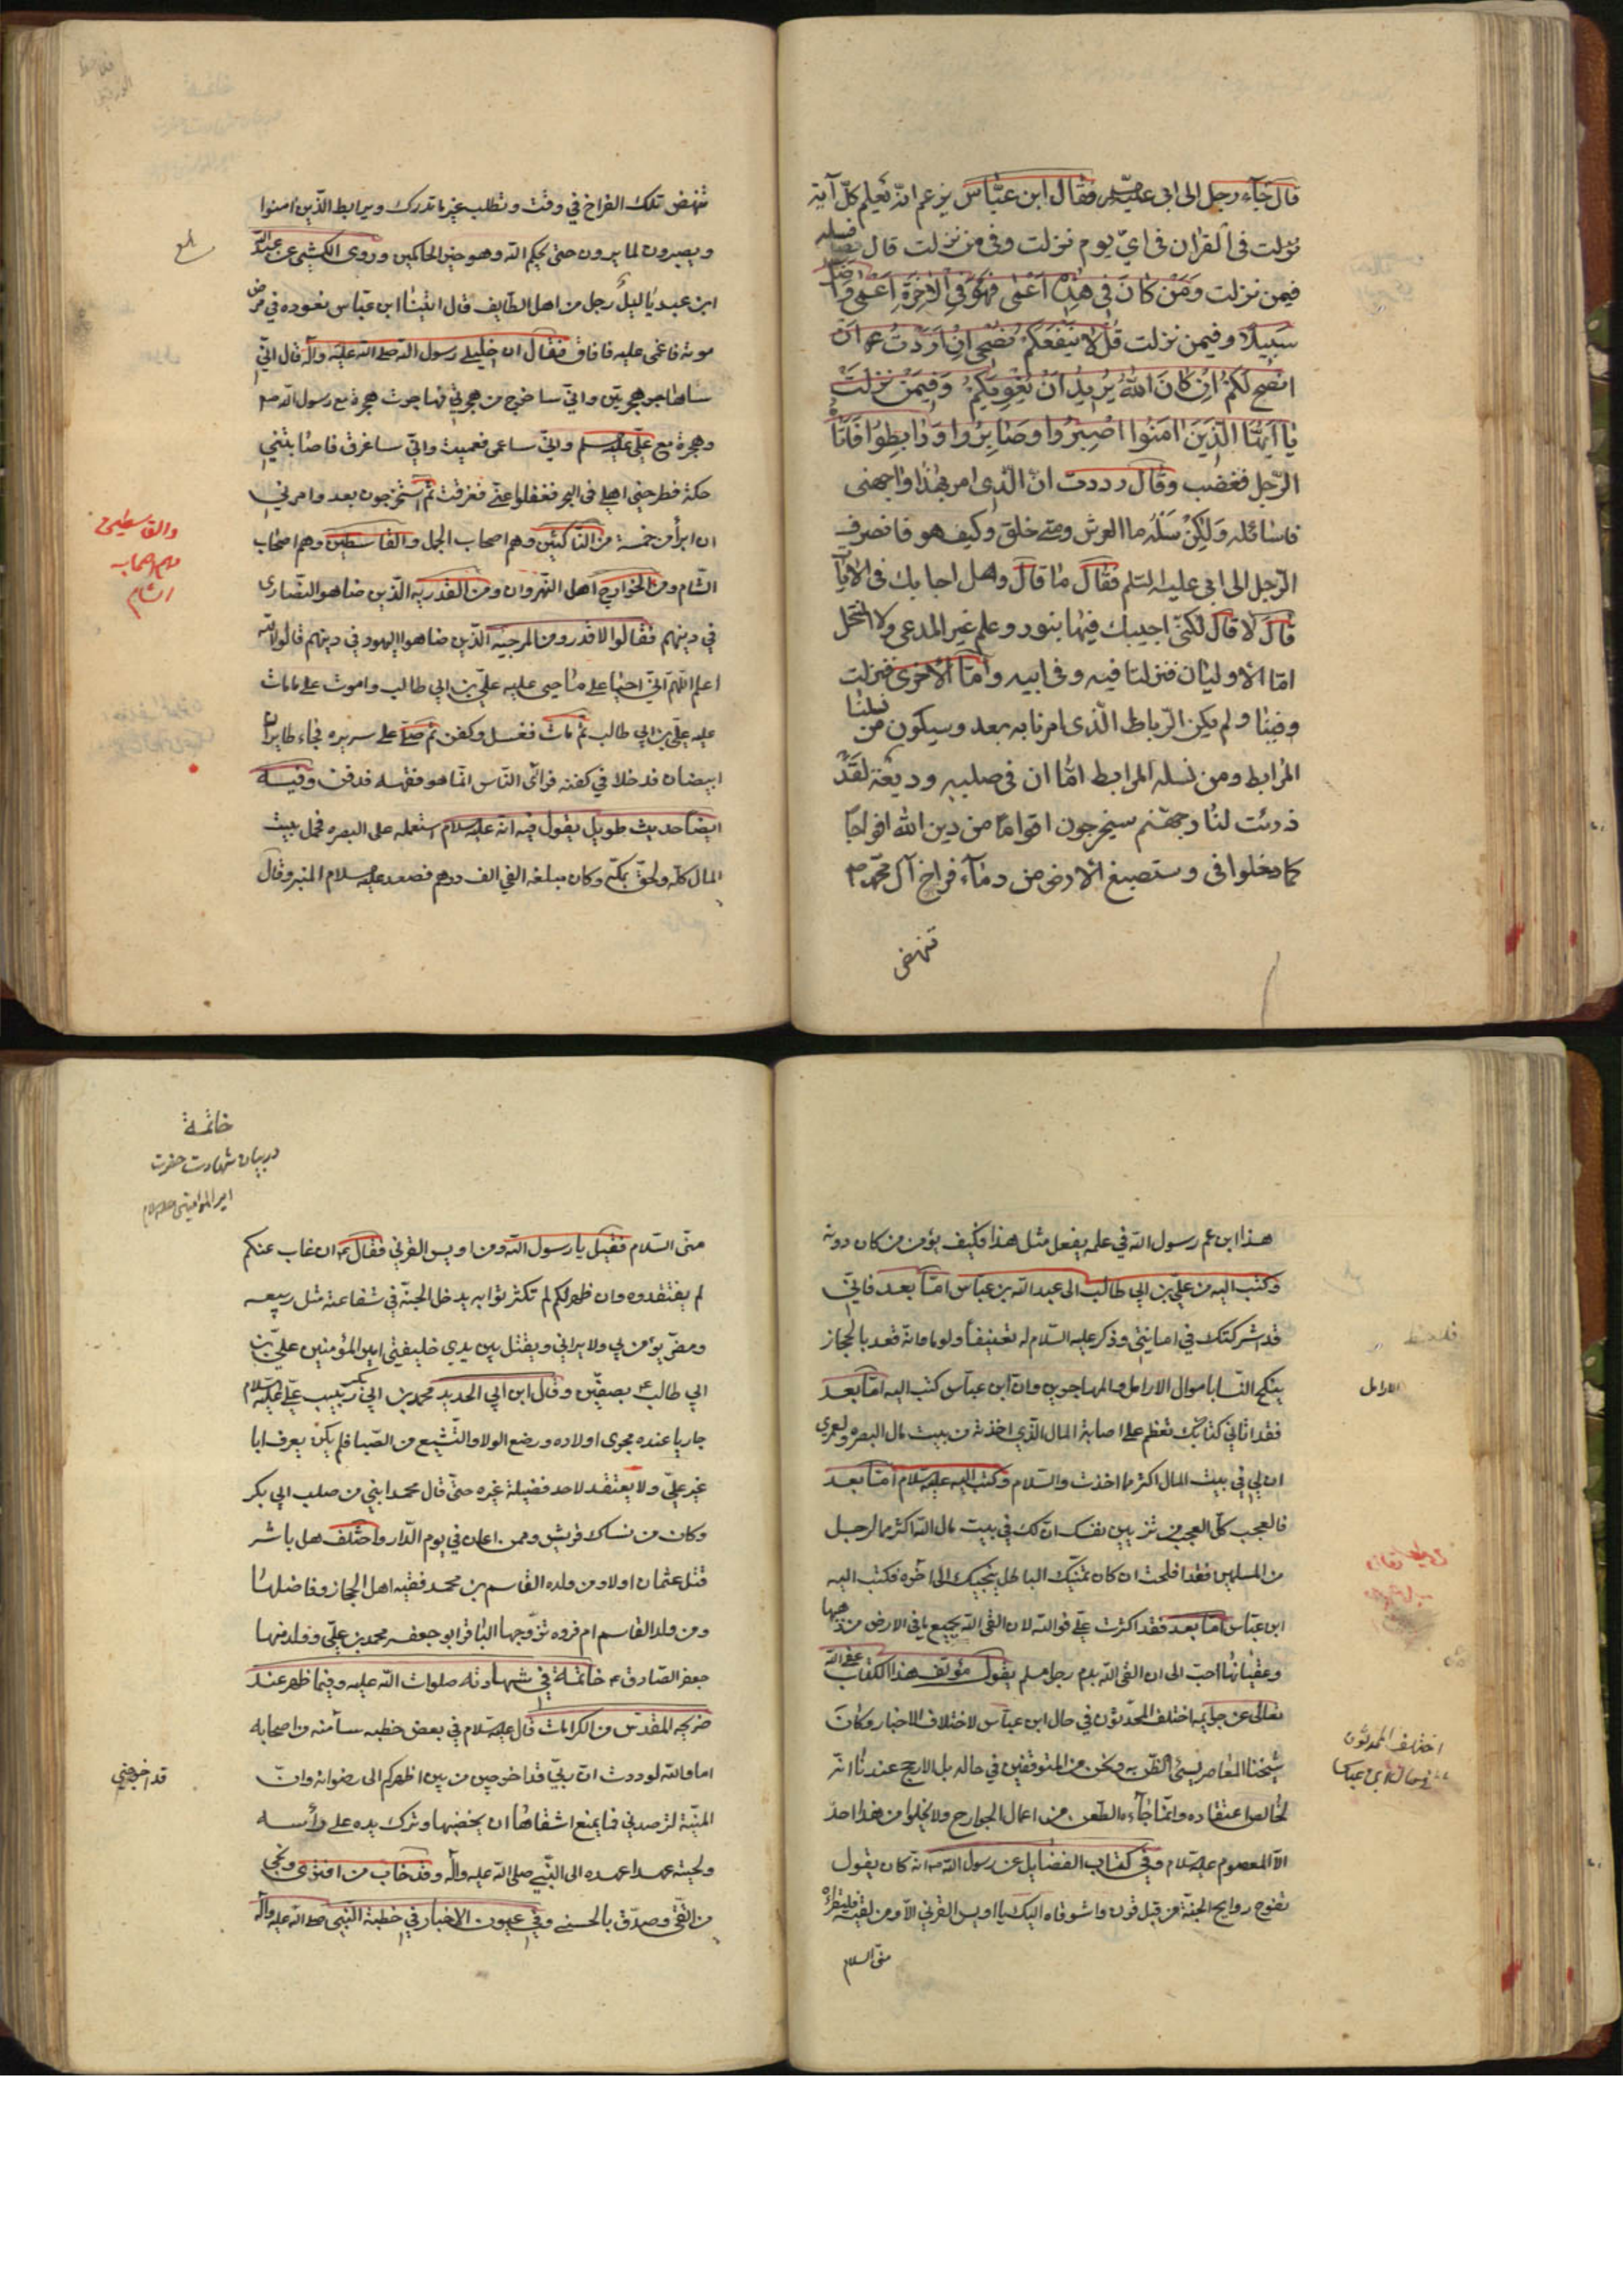 قال جآء رجل الى ابى عليه السلم فقال ابن عبّاس يزعم انّه يعلم كلّ آية
نزلت فى القرآن فى ايّ يوم نزلت وفى من نزلت قال فسله
فيمن نزلت ومَنْ كانَ فى هذِهِ اَعْمى فَهُوَ فِي الْآخِرَةِ اَعْمى وَاَضَلُّ
سَبيلًا وفيمن نزلت قُل لا يَنْفَعُكُمْ نُصْحى اِنْ اَرَدْتُ اَنْ
اَنْصَحَ لَكُمْ اِنْ كانَ اللّهُ يُريدُ اَنْ يُغْوِيَكُمْ وَفِيمَنْ نزلت
يا اَيُّهَا الَّذينَ امَنُوا اصْبِرُوا وَصابِرُوا وَرابِطُوا فَاَتاهُ
الرّجل فغضب وقال وددت انّ الّذى امر بهذا واجهنى
فاسائله وَلكِنْ سَلْه ما العرش ومتى خلق وكيف هو فانصرف
الرّجل الى ابى عليه السّلم فقال ما قال وهل اجابك فى الآيآت
قال لا قال لكنّى اجيبك فيها بنور وعلم غير المدعى ولا المنتحل
امّا الاوليان فنزلتا فيه وفى ابيه وامّا الاخرى فنزلت فى ابينا
وفينا ولم يكن الرّباط الّذى امرنا به بعد وسيكون من نسلنا
المرابط ومن نسله المرابط امّا ان فى صلبه وديعة لقد
ذرئت لنار جهنّم سيخرجون اقواما من دين الله افواجا
كما دخلوا فى وستصبغ الارض من دمآء فراخ آل محمّد ص
تنهض
تنهض تلك الفراخ في وقت وتطلب غير ما تدرك ويرابط الّذين امنوا
ويصبرون لما يرون حتى يحكم الله وهو خير الحاكمين وروى الكشي عن عبد الله
ابن عبد ياليل رجل من اهل الطايف قال اتينا ابن عبّاس نعوده في مرض
موته فاغمى عليه فافاق فقال ان خليلي رسول الله صلى الله عليه وآله قال انّي
ساهاجر هجرتين وانّي ساخرج من هجرتي فهاجرت هجرة مع رسول الله ص
وهجرة مع علي عليه السلم وانّي ساعمى فعميت وانّي ساغرق فاصابتني
حكة فطرحني اهلي في البحر فغفلوا عنّي فغرقت ثم استخرجون بعد وامرني
ان ابرأ من خمسة من الناكثين وهم اصحاب الجمل والقاسطين وهم اصحاب
الشام ومن الخوارج اهل النهروان ومن القدرية الّذين ضاهوا النصارى
في دينهم فقالوا لا قدر ومن المرجئة الّذين ضاهوا اليهود في دينهم قالوا الله
اعلم اللّهم انّي احيا على ما حيى عليه عليّ بن ابي طالب واموت على ما مات
عليه علي بن ابي طالب ثم مات فغسل وكفن ثم صلّي على سريره فجاء طايران
ابيضان فدخلا في كفنه فرائى الناس انما هو فقهه فدفن وفيه
ايضا حديث طويل يقول فيه انه عليه السلام استعمله على البصره فحمل بيت
المال كله ولحق بمكه وكان مبلغه الفي الف درهم فصعد عليه السلام المنبر وقال
والقاسطين
وهم اصحاب
الشام
هذا ابن عم رسول الله في علمه يفعل مثل هذا فكيف يؤمن من كان دونه
وكتب اليه من علي بن ابي طالب الى عبد الله بن عباس امّا بعد فانّي
قد شركتك في امانتي وذكر عليه السلام له تعنيفاً ولوما وانه قعد بالحجاز
ينكح النسا باموال الارامل والمهاجرين وان ابن عباس كتب اليه امّا بعد
فقد اتاني كتابك تعظم علي اصابة المال الّذي اخذته من بيت مال البصره ولعمري
ان لي في بيت المال اكثر مما اخذت والسلام وكتب اليه عليه السلام امّا بعد
فالعجب كل العجب من تزيين نفسك ان لك في بيت مال الله اكثر مما لرجل
من المسلمين فقد افلحت ان كان تمنّيك الباطل ينجيك الى آخره فكتب اليه
ابن عباس امّا بعد فقد اكثرت علي فوالله لان القى الله بجميع ما في الارض من ذهبها
وعقيانها احبّ الى ان القى الله بدم رجل مسلم يقول مؤلف هذا الكتاب عفى الله
تعالى عن جرايمه اختلف المحدّثون في حال ابن عباس لاختلاف الاخبار وكان
شيخنا المعاصر يسئ الظن به ونحن من المتوقفين في حاله بل الارجح عندنا انّه
خالص اعتقاده وانّما جآءه الطعن من اعمال الجوارح ولا يخلوا من هذا احد
الا المعصوم عليه السلام وفي كتاب الفضايل عن رسول الله ص انّه كان يقول
تفوح روايح الجنّة من قبل قرن واشوقاه اليك يا اويس القرني الا ومن لقيه فليقرئه
منّي السلام
الارامل
اختلف المحدثون
في حال ابن عباس
خاتمة
در بيان شهادت حضرت
امير المؤمنين عليه السلام
منّي السّلام فقيل يا رسول الله ومن اويس القرني فقال ص ان غاب عنكم
لم يفتقدوه وان ظهر لكم لم تكثرثوا به يدخل الجنّة في شفاعته مثل ربيعه
ومضر يؤمن بي ولا يراني ويقتل بين يدي خليفتي امير المؤمنين علي بن
ابي طالب ع بصفّين وقال ابن ابي الحديد محمد بن ابي بكر ربيب علي عليه السلام
جاريا عنده مجرى اولاده ورضع الولا والتشيع من الصّبا فلم يكن يعرف ابا
غير علي ولا يعتقد لاحد فضيلة غيره حتى قال محمد ابني من صلب ابي بكر
وكان من نساك قريش وممن اعان في يوم الدّار واختلف هل باشر
قتل عثمان اولا ومن ولده القاسم بن محمد فقيه اهل الحجاز وفاضلها
ومن ولد القاسم ام فروه تزوّجها الباقر ابو جعفر محمد بن علي وولد منها
جعفر الصّادق ع خاتمة في شهادته صلوات الله عليه وفيما ظهر عند
ضريحه المقدّس من الكرامات قال عليه السلام في بعض خطبه سأمنه من اصحابه
اما والله لوددت ان ربّي قد اخرجني من بين اظهركم الى رضوانه وانّ
المنيّة لترصدني فما يمنع اشقاها ان يخضبها وترك يده على رأسه
ولحيته عهدا عهده الى النّبي صلى الله عليه وآله وقد خاب من افترى ونجى
من اتقى وصدّق بالحسنى وفي عيون الاخبار في خطبة النبي صلى الله عليه وآله
قد اخرجني